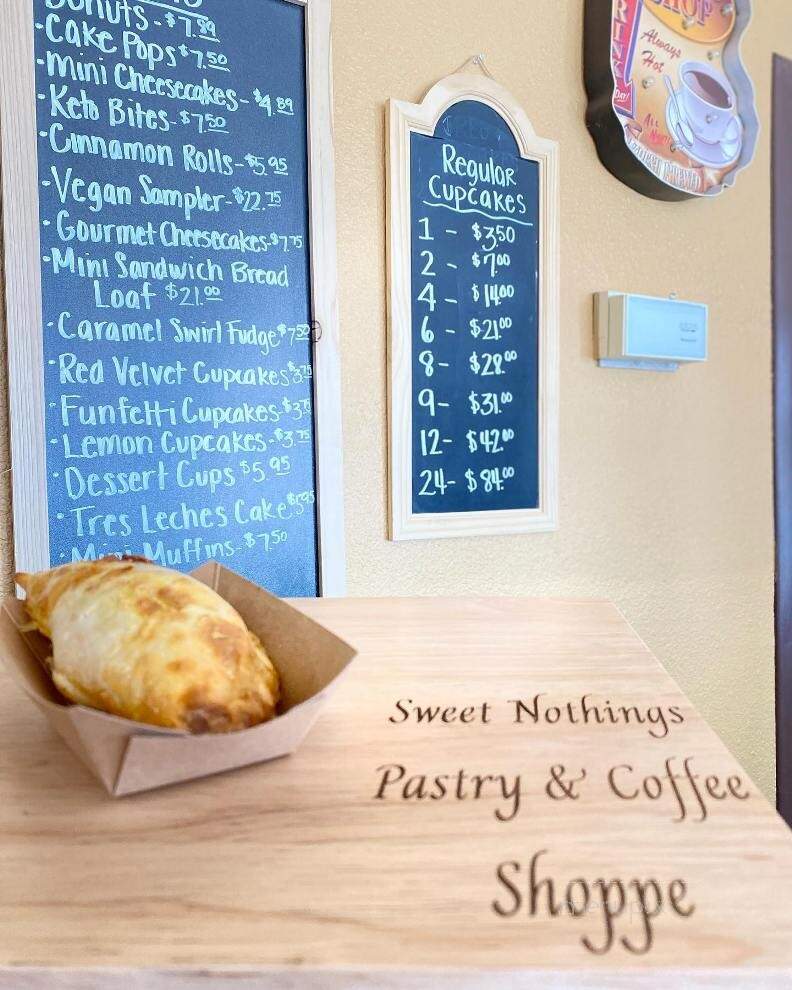 Donuts - $7.99
• Cake Pops $7.50
• mini Cheesecakes - $4.89
• Keto Bites - $7.50
• Cinnamon Rolls - $5.95
• Vegan Sampler - $22.75
• Gourmet Cheesecakes - $7.75
• Mini Sandwich Bread
Loaf $21.00
• Caramel Swirl Fudge $7.50
• Red Velvet Cupcakes $3.75
• Funfetti Cupcakes - $3.75
• Lemon Cupcakes - $3.75
• Dessert Cups $5.95
• Tres Leches Cake $5.95
• Mini Muffins - $7.50
Regular
Cupcakes
1 - $3.50
2 - $7.00
4 - $14.00
6 - $21.00
8 - $28.00
9 - $31.00
12 - $42.00
24 - $84.00
SHOP
Always
Hot
Sweet Nothings
Pastry & Coffee
Shoppe